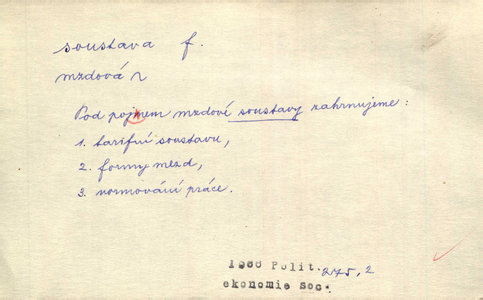 soustava f.
mzdová ~
Pod pojmem mzdové soustavy zahrnujeme:
1. tarifní soustavu,
2. formy mezd,
3. normování práce.
Polit. 275, 2
ekonomie soc.